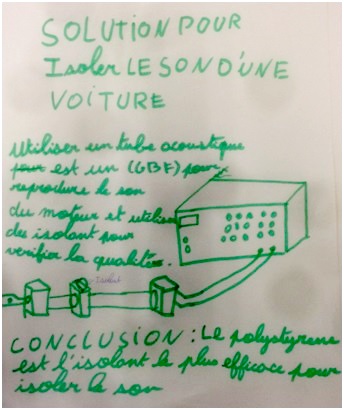 SOLUTION POUR
Isoler LE SON D'UNE
VOITURE
Utiliser un tube acoustique
pour est un (GBF) pour
reproduire le son
du moteur et utiliser
des isolant pour
vérifier la qualité.
Isolant
CONCLUSION : Le polystyrene
est l'isolant le plus efficace pour
isoler le son